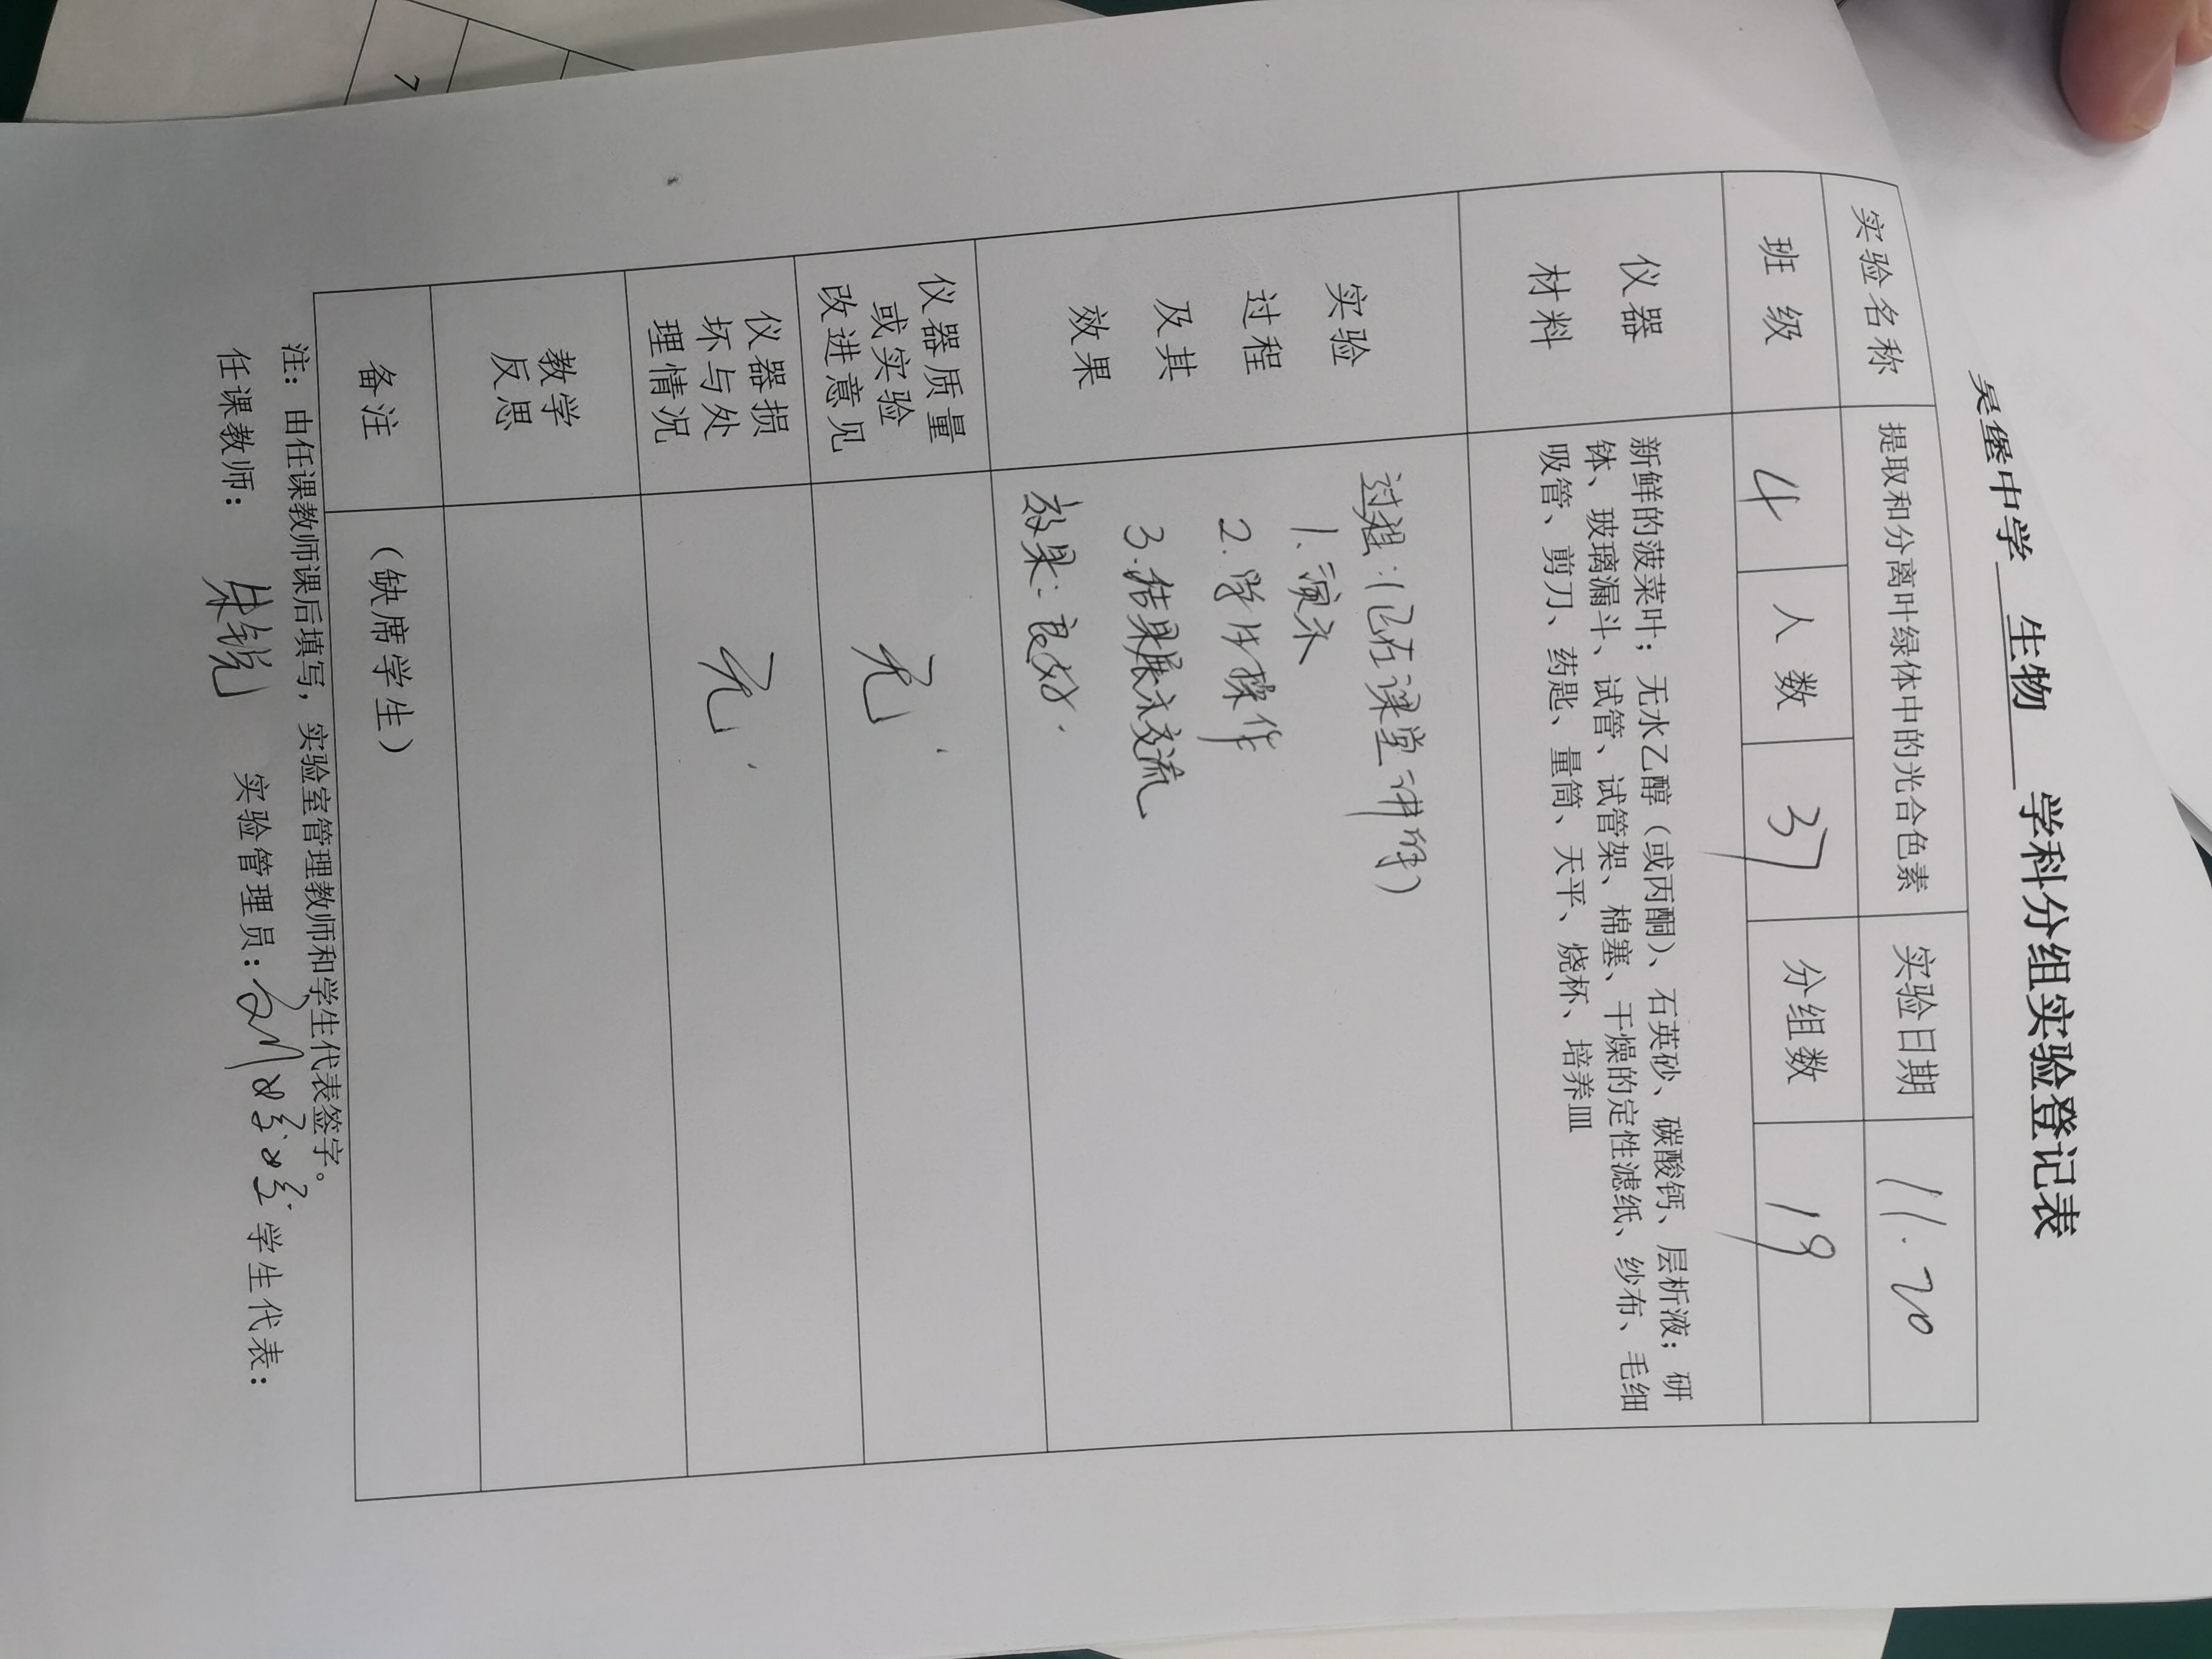 吴堡中学 生物 学科分组实验登记表
实验名称 提取和分离叶绿体中的光合色素 实验日期 11.20
班 级 4 人 数 37 分组数 19
仪器
材料
新鲜的菠菜叶；无水乙醇（或丙酮）、石英砂、碳酸钙、层析液；研
钵、玻璃漏斗、试管、试管架、棉塞、干燥的定性滤纸、纱布、毛细
吸管、剪刀、药匙、量筒、天平、烧杯、培养皿
实验
过程
及其
效果
过程：（已在课堂讲解）
1.演示
2.学生操作
3.结果展示交流
效果：良好.
仪器质量
或实验
改进意见
无.
仪器损
坏与处
理情况
无.
教学
反思
备注 （缺席学生）
注：由任课教师课后填写，实验室管理教师和学生代表签字。
任课教师： 朱锐 实验管理员： 学生代表：